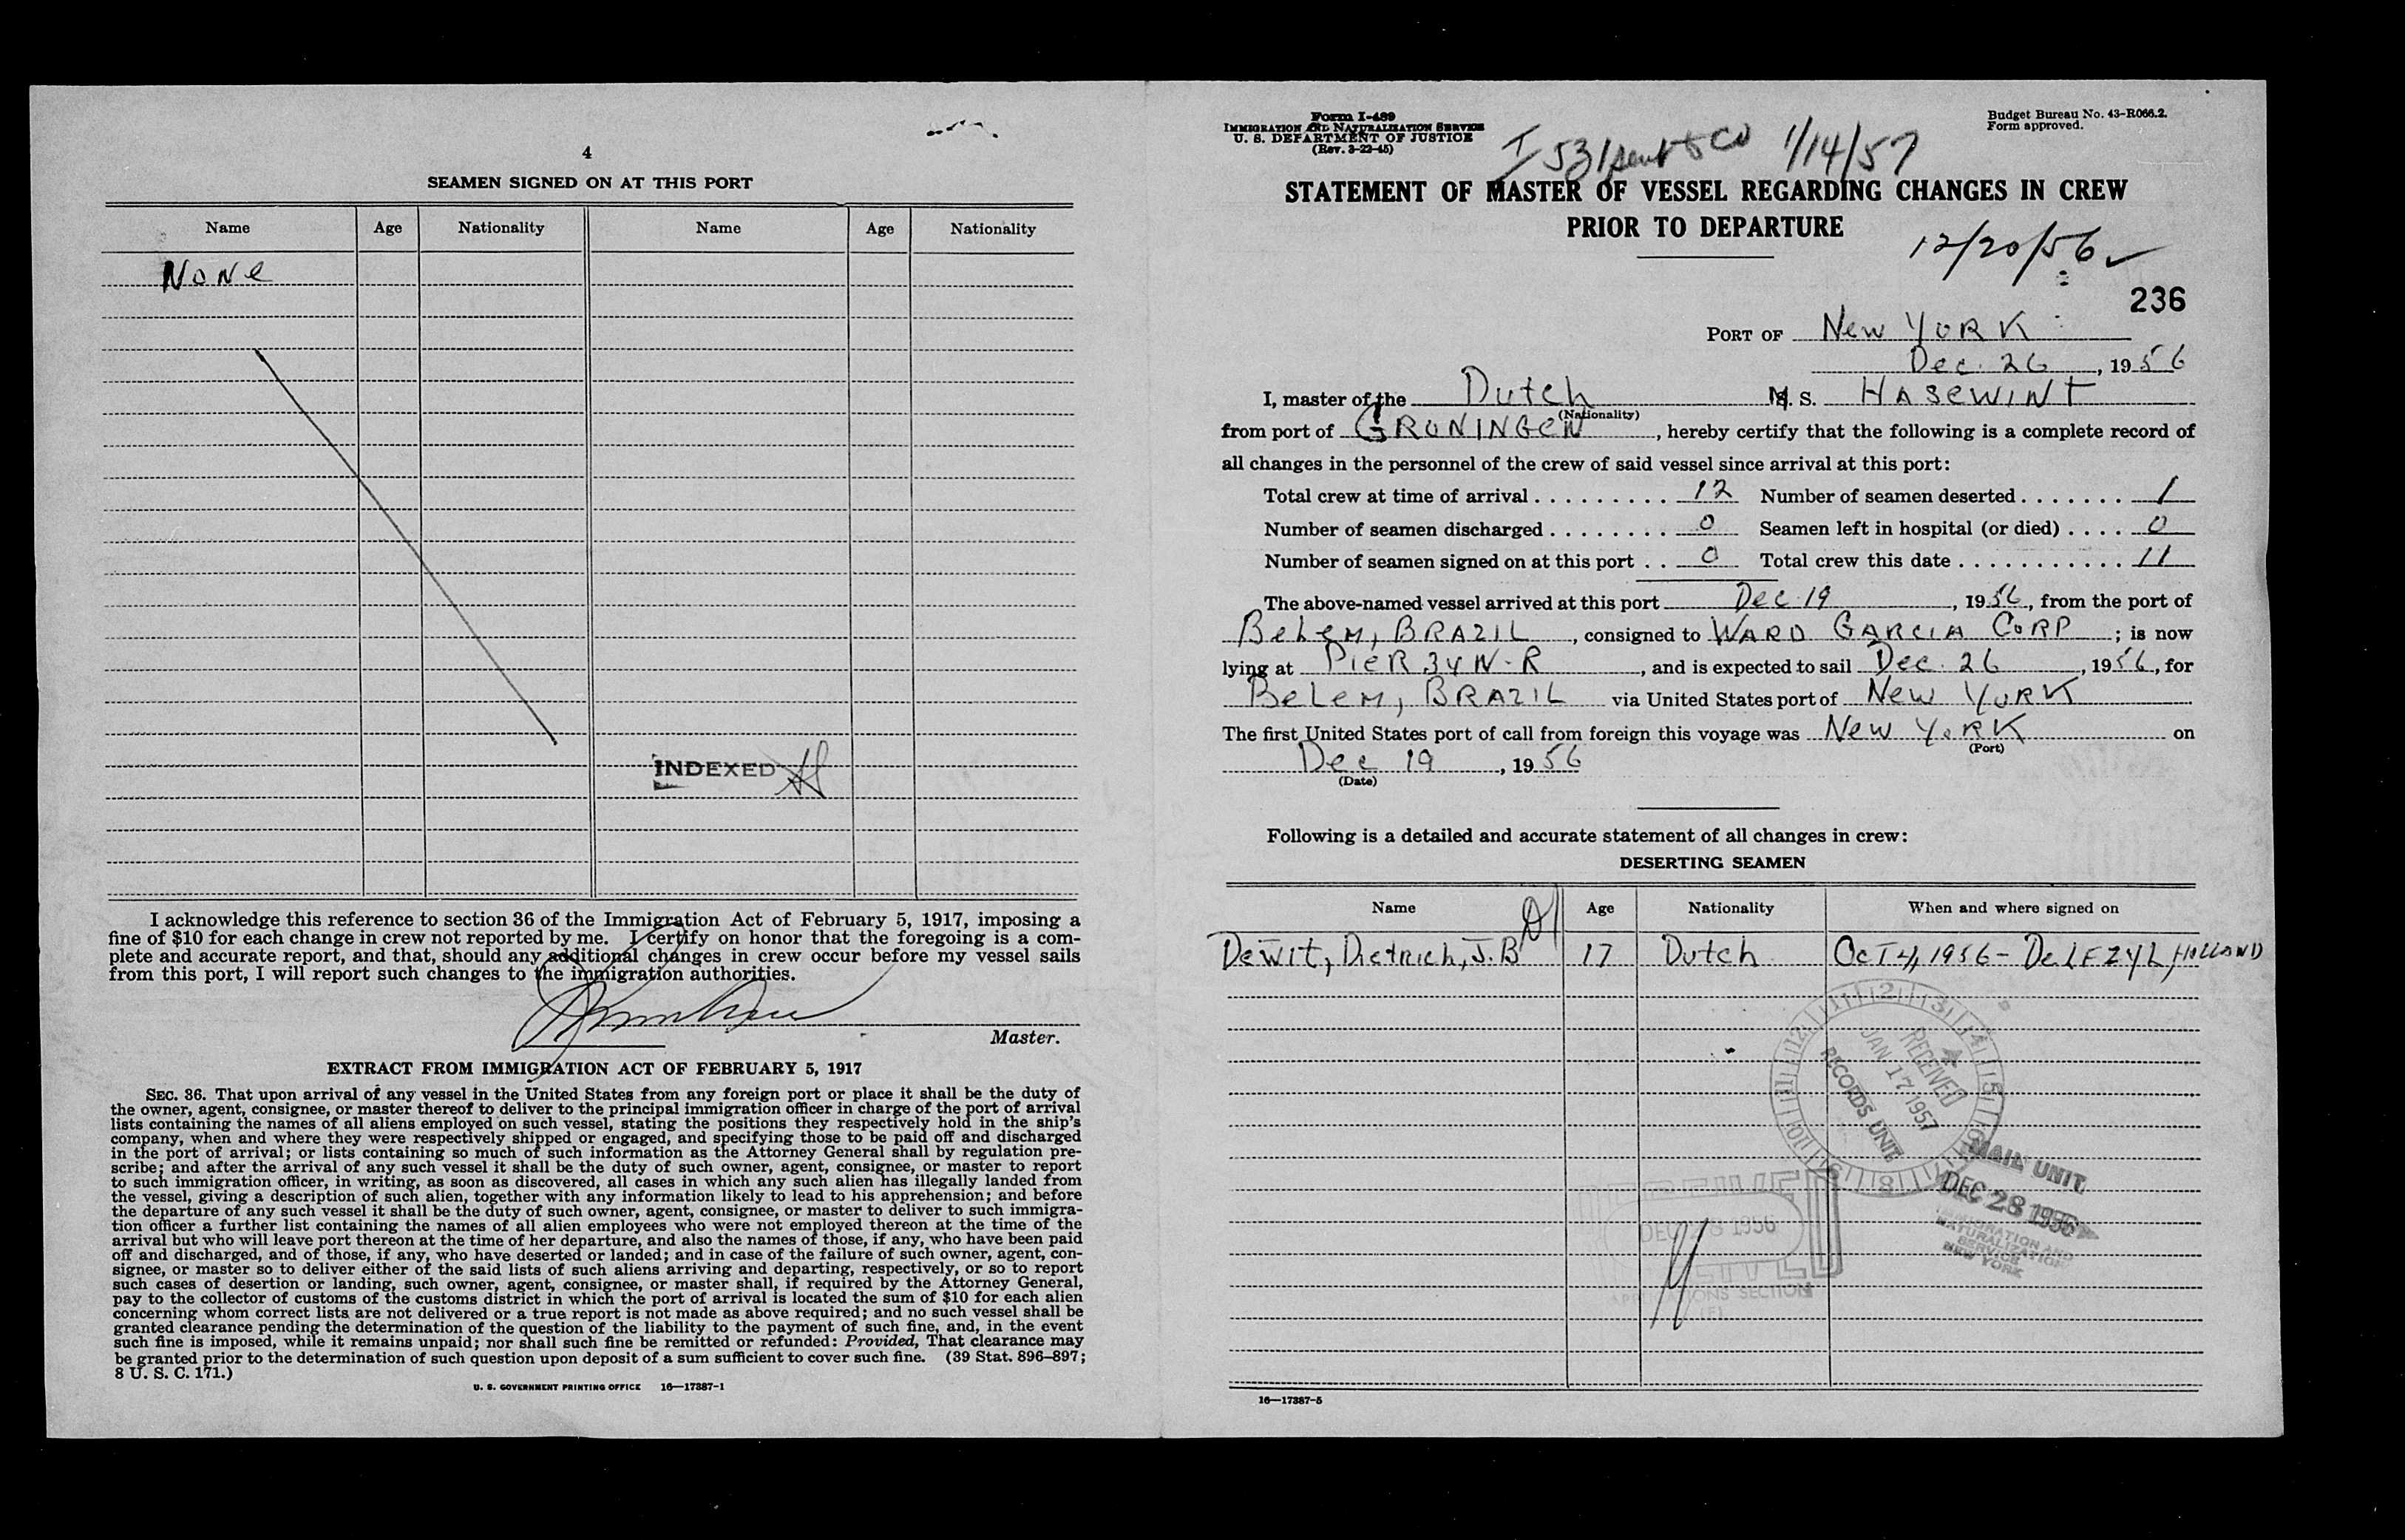 4
SEAMEN SIGNED ON AT THIS PORT
Name Age Nationality Name Age Nationality
None
INDEXED
I acknowledge this reference to section 36 of the Immigration Act of February 5, 1917, imposing a
fine of $10 for each change in crew not reported by me. I certify on honor that the foregoing is a com-
plete and accurate report, and that, should any additional changes in crew occur before my vessel sails
from this port, I will report such changes to the immigration authorities.
Master.
EXTRACT FROM IMMIGRATION ACT OF FEBRUARY 5, 1917
SEC. 36. That upon arrival of any vessel in the United States from any foreign port or place it shall be the duty of
the owner, agent, consignee, or master thereof to deliver to the principal immigration officer in charge of the port of arrival
lists containing the names of all aliens employed on such vessel, stating the positions they respectively hold in the ship's
company, when and where they were respectively shipped or engaged, and specifying those to be paid off and discharged
in the port of arrival; or lists containing so much of such information as the Attorney General shall by regulation pre-
scribe; and after the arrival of any such vessel it shall be the duty of such owner, agent, consignee, or master to report
to such immigration officer, in writing, as soon as discovered, all cases in which any such alien has illegally landed from
the vessel, giving a description of such alien, together with any information likely to lead to his apprehension; and before
the departure of any such vessel it shall be the duty of such owner, agent, consignee, or master to deliver to such immigra-
tion officer a further list containing the names of all alien employees who were not employed thereon at the time of the
arrival but who will leave port thereon at the time of her departure, and also the names of those, if any, who have been paid
off and discharged, and of those, if any, who have deserted or landed; and in case of the failure of such owner, agent, con-
signee, or master so to deliver either of the said lists of such aliens arriving and departing, respectively, or so to report
such cases of desertion or landing, such owner, agent, consignee, or master shall, if required by the Attorney General,
pay to the collector of customs of the customs district in which the port of arrival is located the sum of $10 for each alien
concerning whom correct lists are not delivered or a true report is not made as above required; and no such vessel shall be
granted clearance pending the determination of the question of the liability to the payment of such fine, and, in the event
such fine is imposed, while it remains unpaid; nor shall such fine be remitted or refunded: Provided, That clearance may
be granted prior to the determination of such question upon deposit of a sum sufficient to cover such fine. (39 Stat. 896–897;
8 U. S. C. 171.)
U. S. GOVERNMENT PRINTING OFFICE 16—17387-1
Form I-489
IMMIGRATION AND NATURALIZATION SERVICE
U. S. DEPARTMENT OF JUSTICE
(Rev. 3-22-45)
Budget Bureau No. 43-R066.2.
Form approved.
I 531 sent to CO 1/14/57
STATEMENT OF MASTER OF VESSEL REGARDING CHANGES IN CREW
PRIOR TO DEPARTURE
12/20/56
236
PORT OF New YORK
Dec. 26, 1956
I, master of the Dutch M. S. HASEWINT
(Nationality)
from port of GRONINGEN, hereby certify that the following is a complete record of
all changes in the personnel of the crew of said vessel since arrival at this port:
Total crew at time of arrival 12 Number of seamen deserted 1
Number of seamen discharged 0 Seamen left in hospital (or died) 0
Number of seamen signed on at this port 0 Total crew this date 11
The above-named vessel arrived at this port Dec 19, 1956, from the port of
Belem, BRAZIL, consigned to WARD GARCIA CORP; is now
lying at PIER 34 N-R, and is expected to sail Dec. 26, 1956, for
BeLem, BRAZIL via United States port of New YORK
The first United States port of call from foreign this voyage was New YORK on
(Port)
Dec 19, 1956
(Date)
Following is a detailed and accurate statement of all changes in crew:
DESERTING SEAMEN
Name Age Nationality When and where signed on
Dewit, Dietrich, J.B 17 Dutch Oct 4, 1956 - DeLFZYL, HOLLAND
RECEIVED
JAN 17 1957
RECORDS UNIT
MAIL UNIT
DEC 28 1956
IMMIGRATION AND
NATURALIZATION
SERVICE
NEW YORK
RECEIVED
DEC 28 1956
APPLICATIONS SECTION
16—17387-5